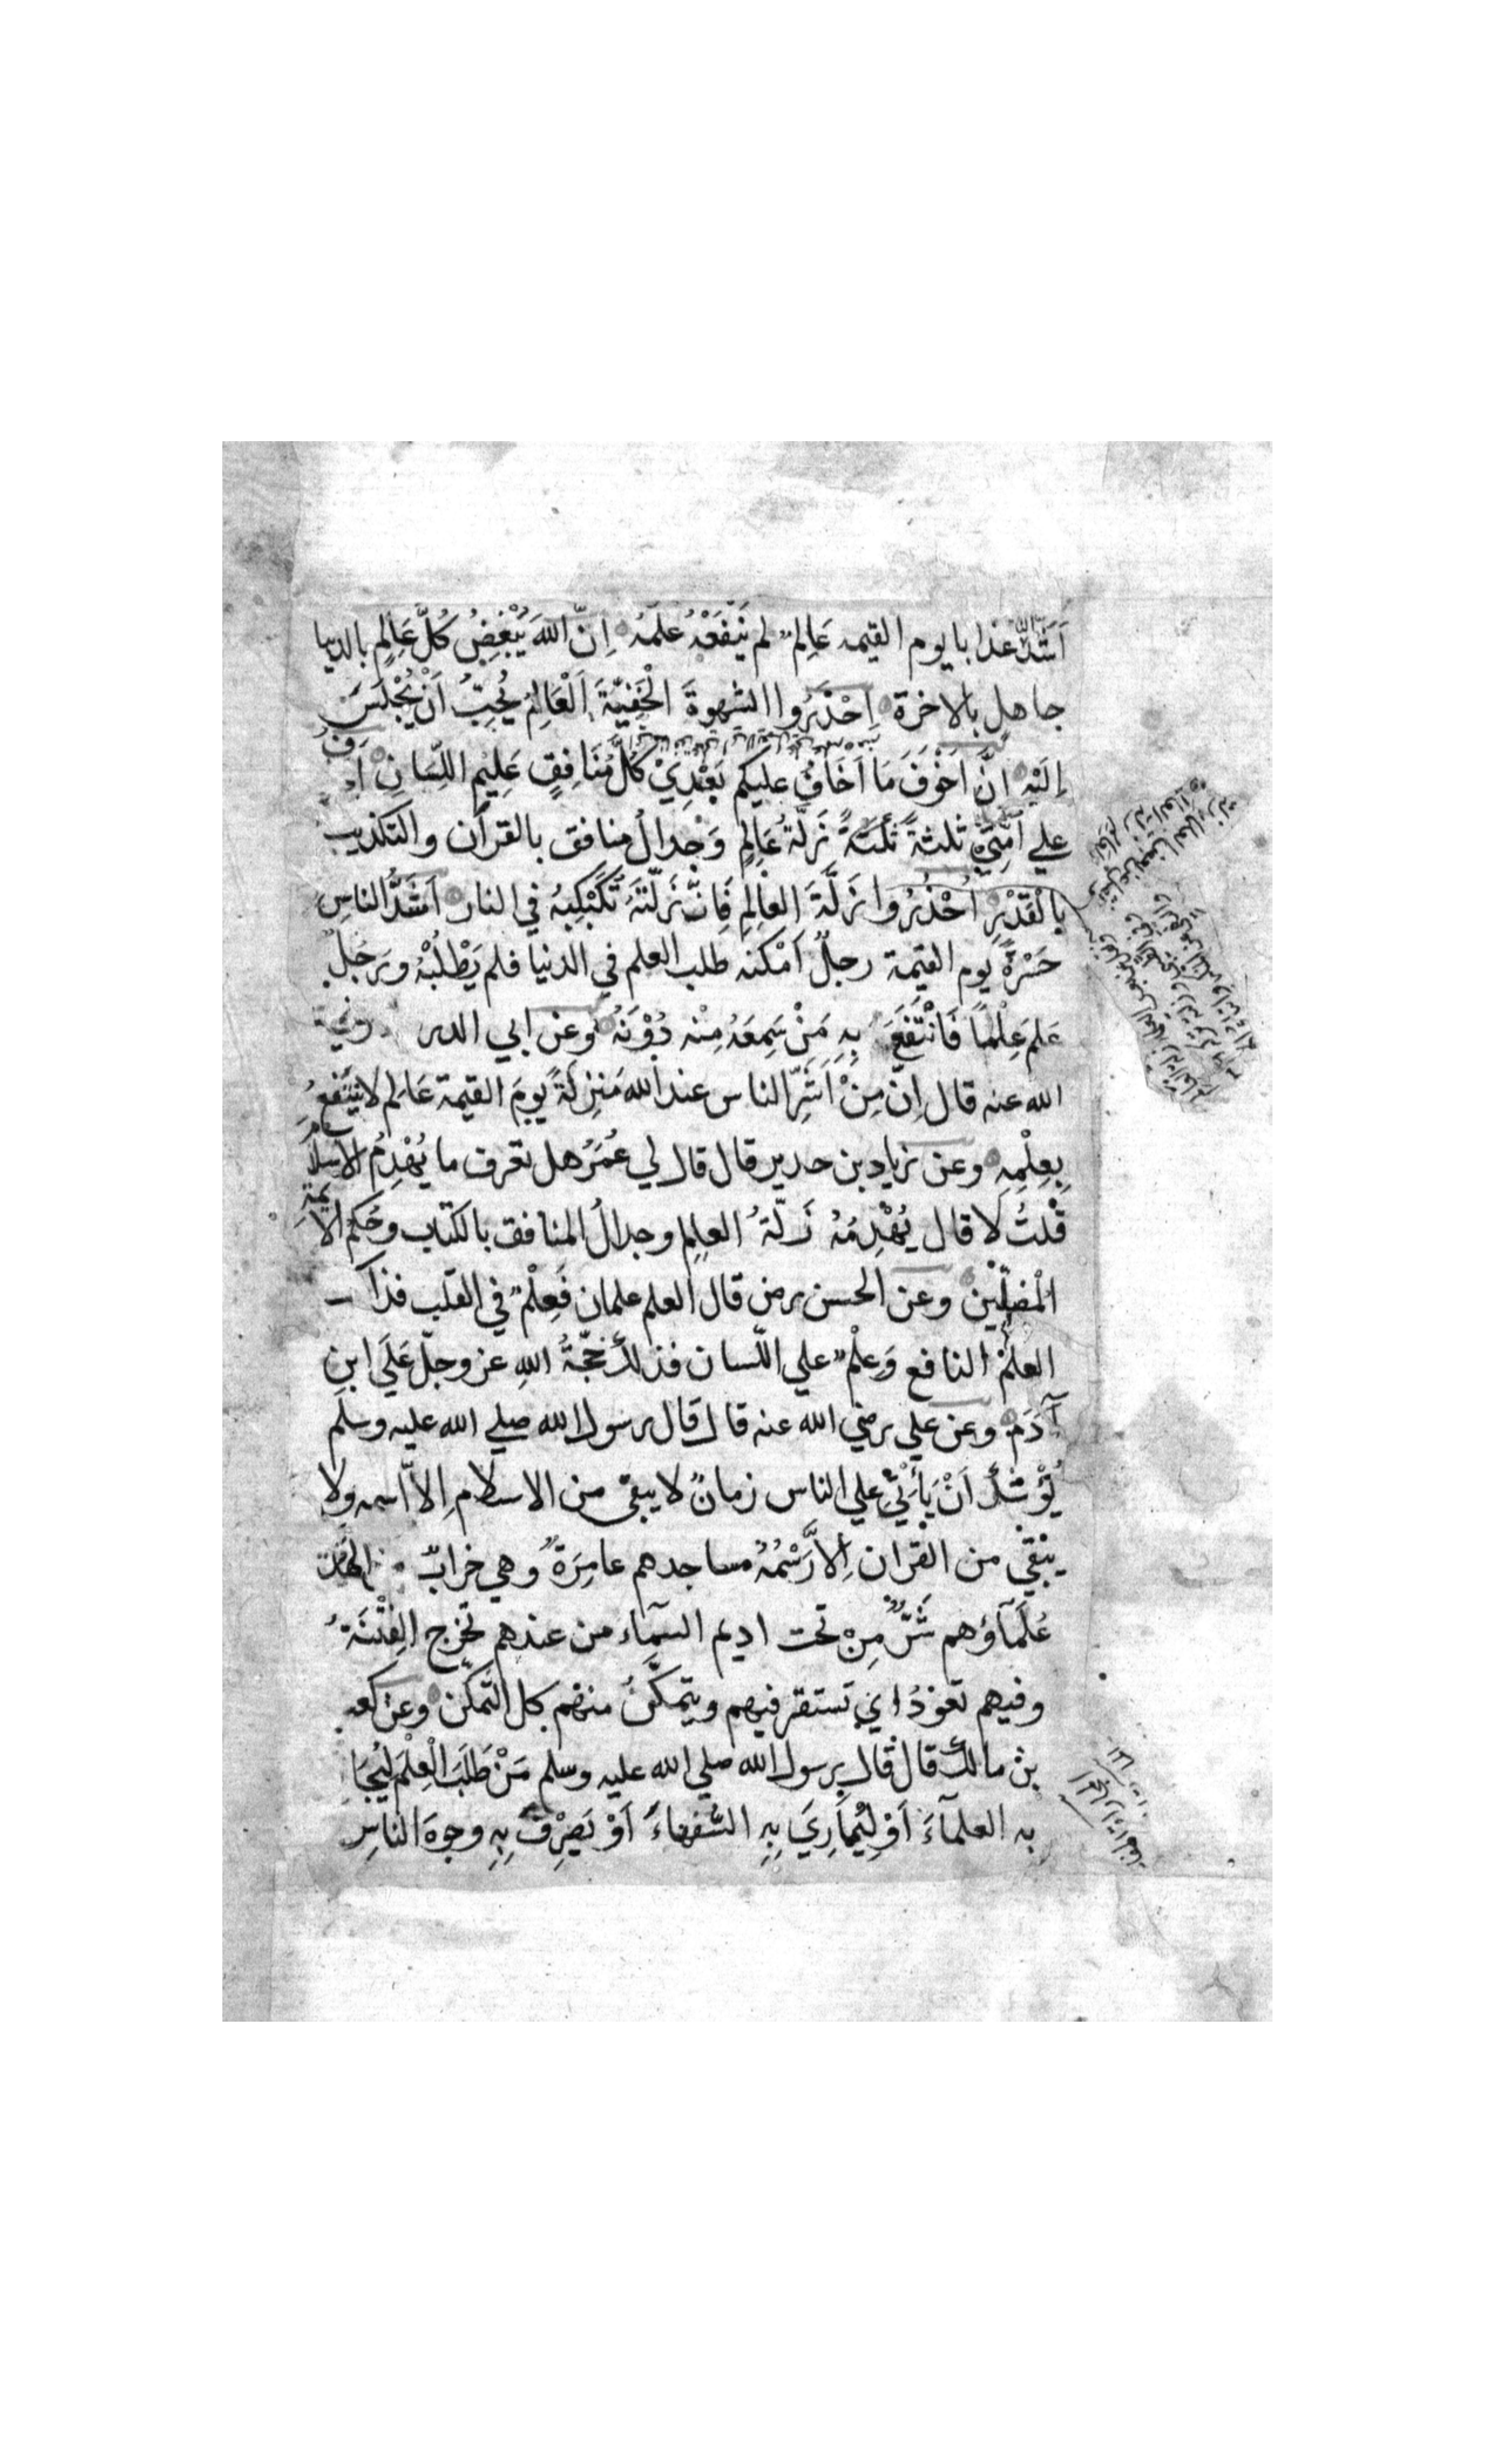 اَشَدُّ النَّاسِ عذابا يوم القيمه عَالِمٌ لم يَنْفَعْهُ علمُهُ اِنَّ اللهَ يُبْغِضُ كُلَّ عَالِمٍ بالدنيا
جاهلٍ بالاخرة اِحْذَرُوا الشهوةَ الْخَفِيَّةَ اَلْعَالِمُ يُحِبُّ اَنْ يُجْلَسَ
اِلَيْهِ اِنَّ اَخْوَفَ مَا اَخَافُ عليكم بَعْدِيْ كُلُّ مُنَافِقٍ عَلِيْمِ اللِّسَانِ
علي اُمَّتِيْ ثلثةً ثلثةً زَلَّةُ عَالِمٍ وَجِدالُ منافق بالقرآن والتكذيب
بالْقَدْرِ اُحْذُرُوا زَلَّةَ العالِمِ فَاِنَّ زَلَّتَهُ تُكَبْكِبُهُ في النار اَشَدُّ الناسِ
حَسْرَةً يَوم القيمة رجلٌ اَمْكنه طلب العلم في الدنيا فلم يَطْلُبْهُ ورَجُلٌ
عَلِمَ عِلْماً فَانْتَفَعَ بِهِ مَنْ سَمِعَهُ مِنْه دُوْنَهُ وعن ابي الدر رضي
الله عنه قال اِنّ مِنْ اَشَرِّ الناس عند الله مَنْزِلَةً يومَ القيمة عَالِم لا يَنْتَفِعُ
بِعِلْمِهِ وعن زياد بن حدير قال قال لي عُمَرُ هل تعرف ما يُهْدِمُ الاسلامَ
قُلْتُ لا قال يُهْدِمُهُ زَلّةُ العلِمِ وجدالُ المنافق بالكتاب وحُكمُ الائمة
الْمضلِّيْن وعن الحسن رض قال العلم علمان فَعِلْمٌ في القلب فذاك
العلمُ النافع وَعِلْمٌ علي اللّسان فذلك حُجّةُ اللهِ عز وجلّ عَلَي ابنِ
آدَمَ وعن علي رضي الله عنه قال قال رسول الله صلي الله عليه وسلم
يُوْشكُ اَنْ يَأْتِيَ علي الناس زمانٌ لا يبقي من الاسلام اِلاَّ اسمه ولا
يَبْقَي من القران اِلاَّ رَسْمُهُ مساجدهم عامِرَةٌ وهي خرابٌ
عُلَمَآؤهم شَرٌّ مِنْ تحت اديم السمآء من عندهم تخرج الفِتْنَةُ
وفيهم تعودُ اي تستقر فيهم ويتمكّنُ منهم كل التمكّن وعن كعب
بن مالك قال قال رسول الله صلي الله عليه وسلم مَنْ طَلَبَ الْعِلْمَ لِيُجَا
به العلمآءَ اَوْ لِيُمارِيَ بِهِ السُّفهاءَ اَوْ يَصْرِفَ بِهِ وجوهَ الناسِ